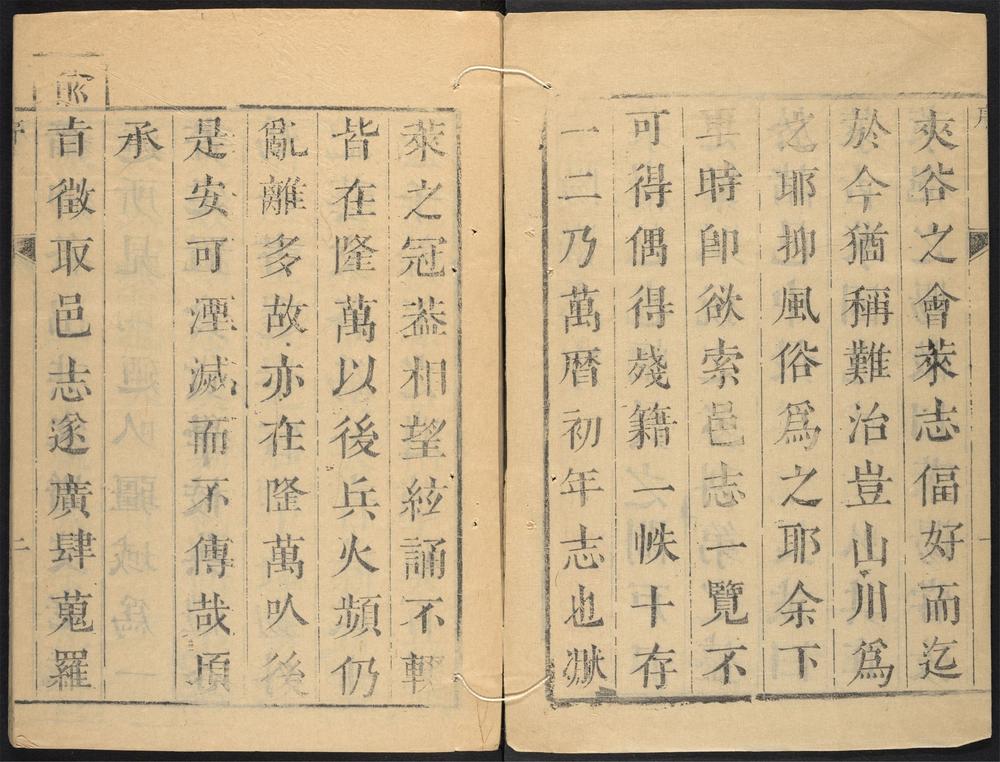 夾谷之會萊志偪好而迄
於今猶稱難治豈山川爲
之耶抑風俗爲之耶余下
車時卽欲索邑志一覽不
可得偶得殘籍一帙十存
一二乃萬曆初年志也
萊之冠葢相望絃誦不輟
皆在隆萬以後兵火頻仍
亂離多故亦在隆萬以後
是安可湮滅而不傳哉頃
承
旨徵取邑志遂廣肆蒐羅
序
二
序
一